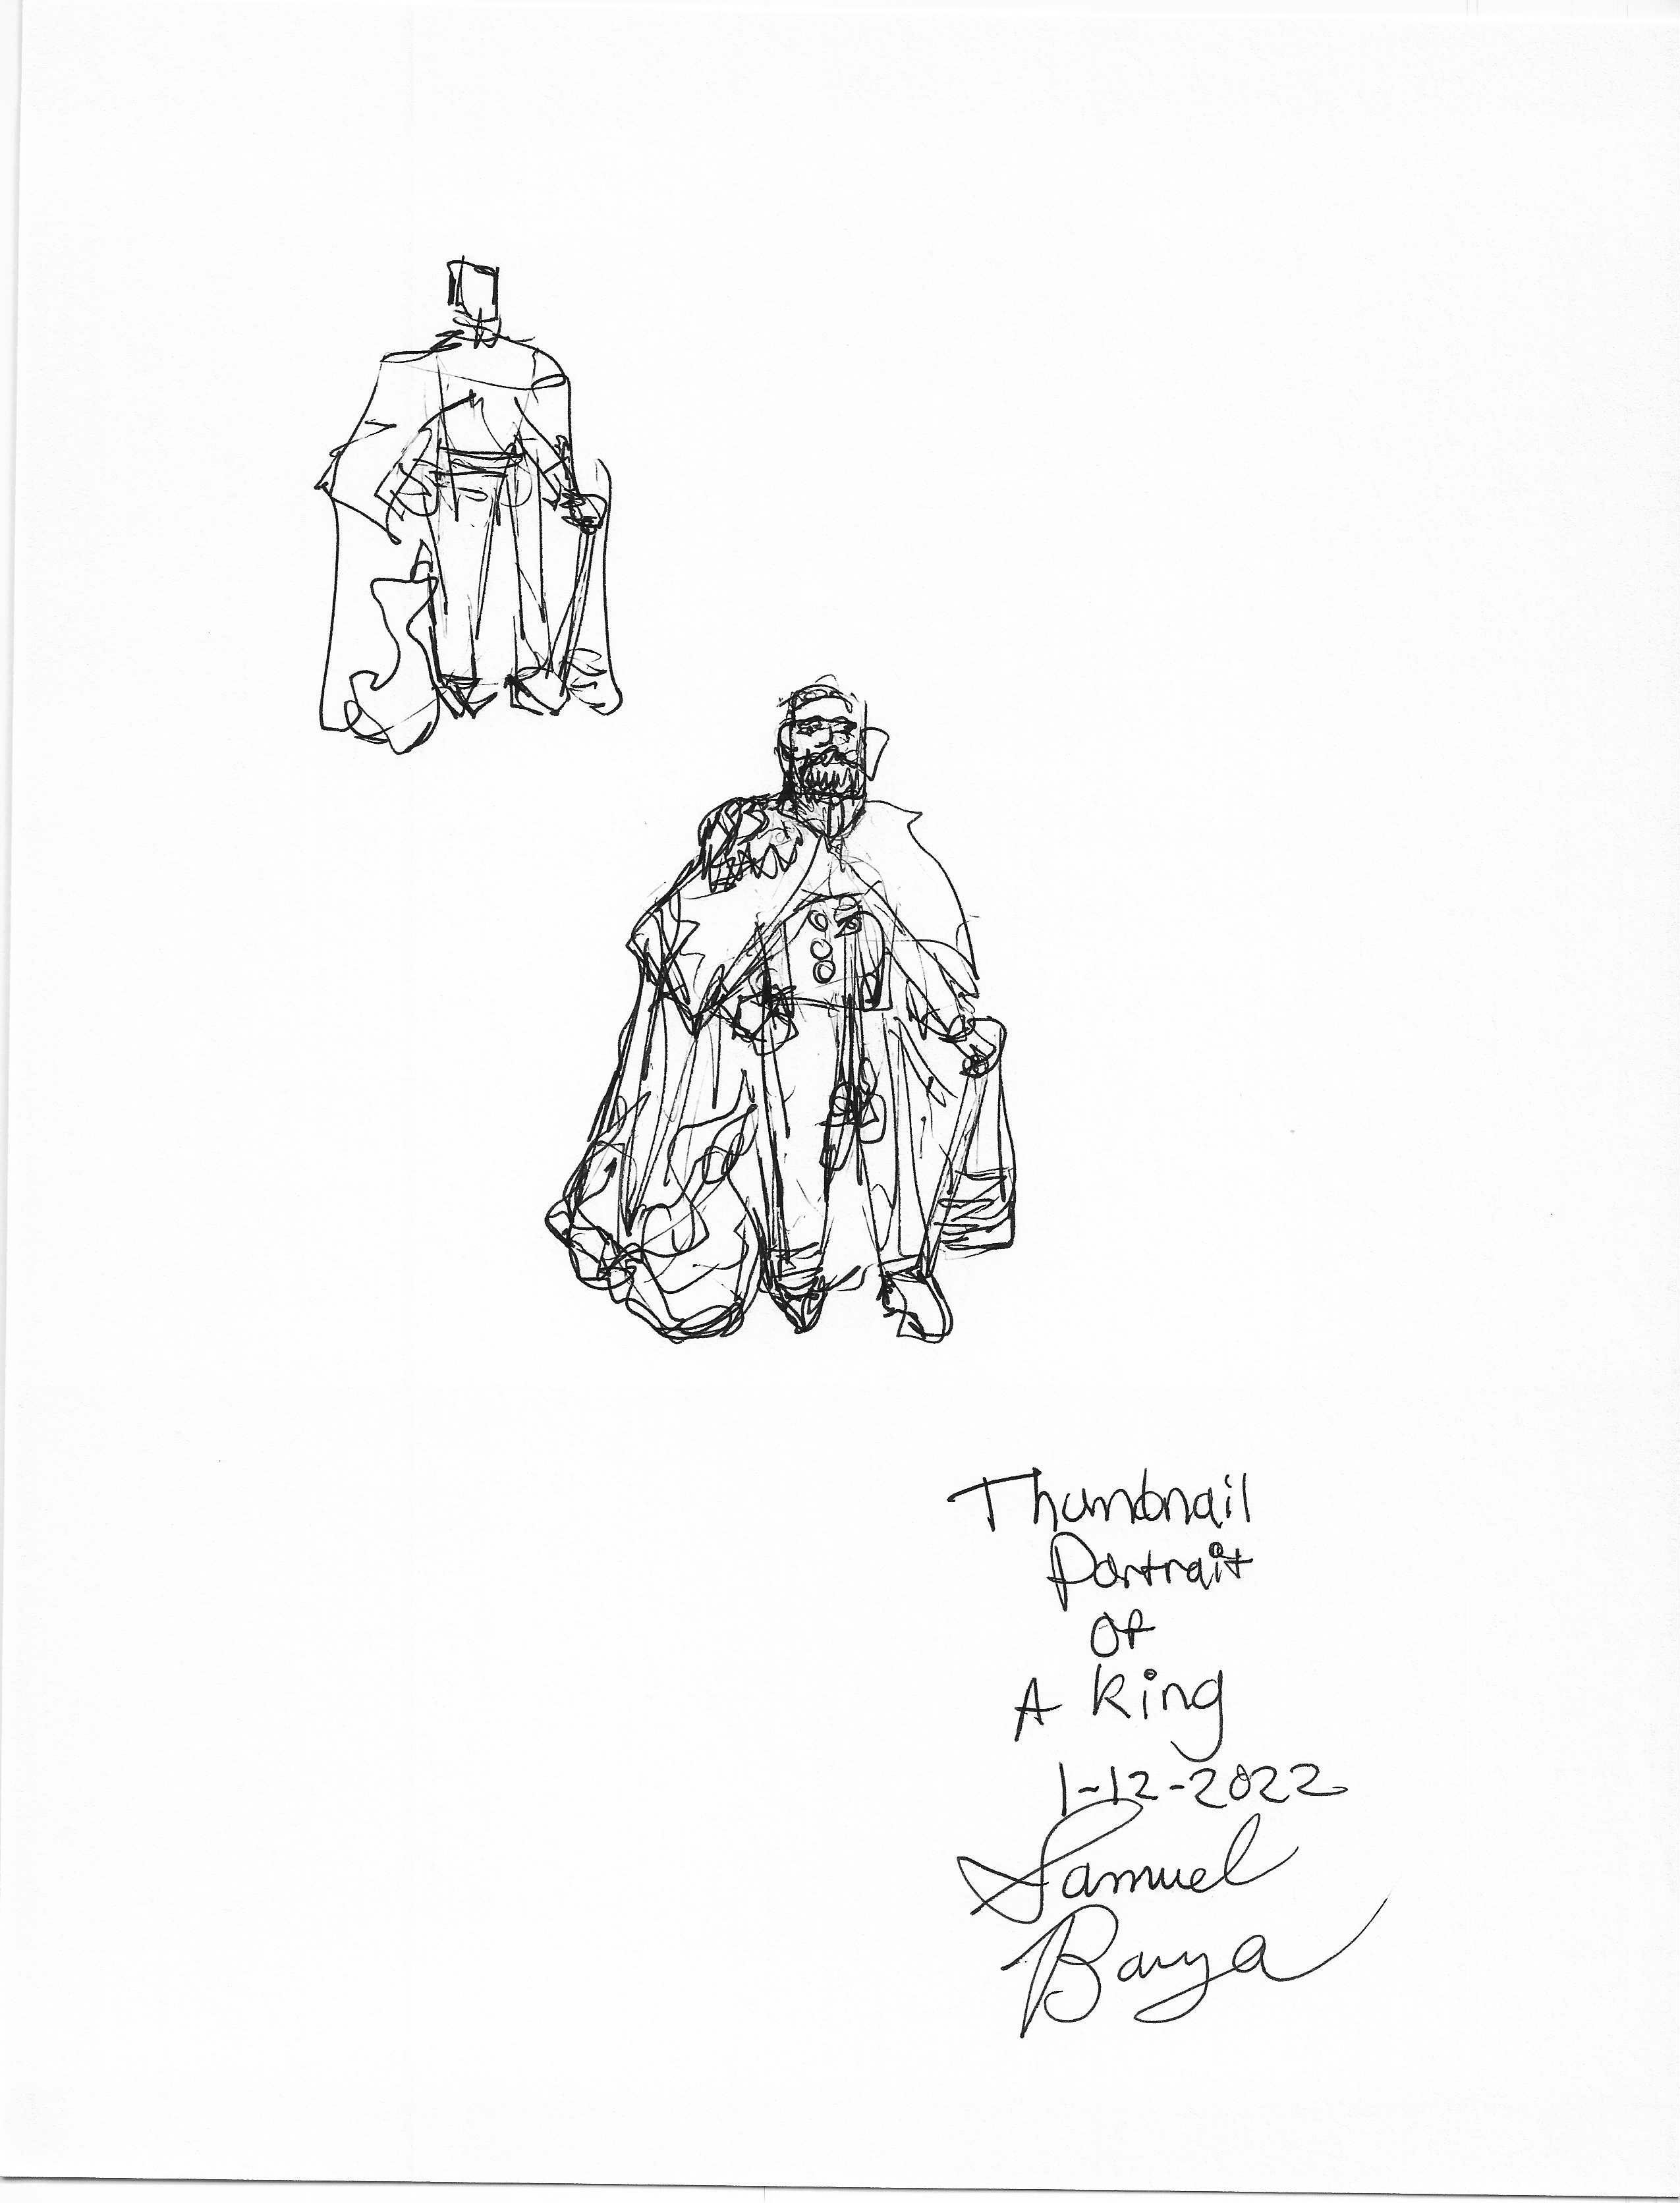 Thumbnail
Portrait
Of
A King
1-12-2022
Samuel
Barya